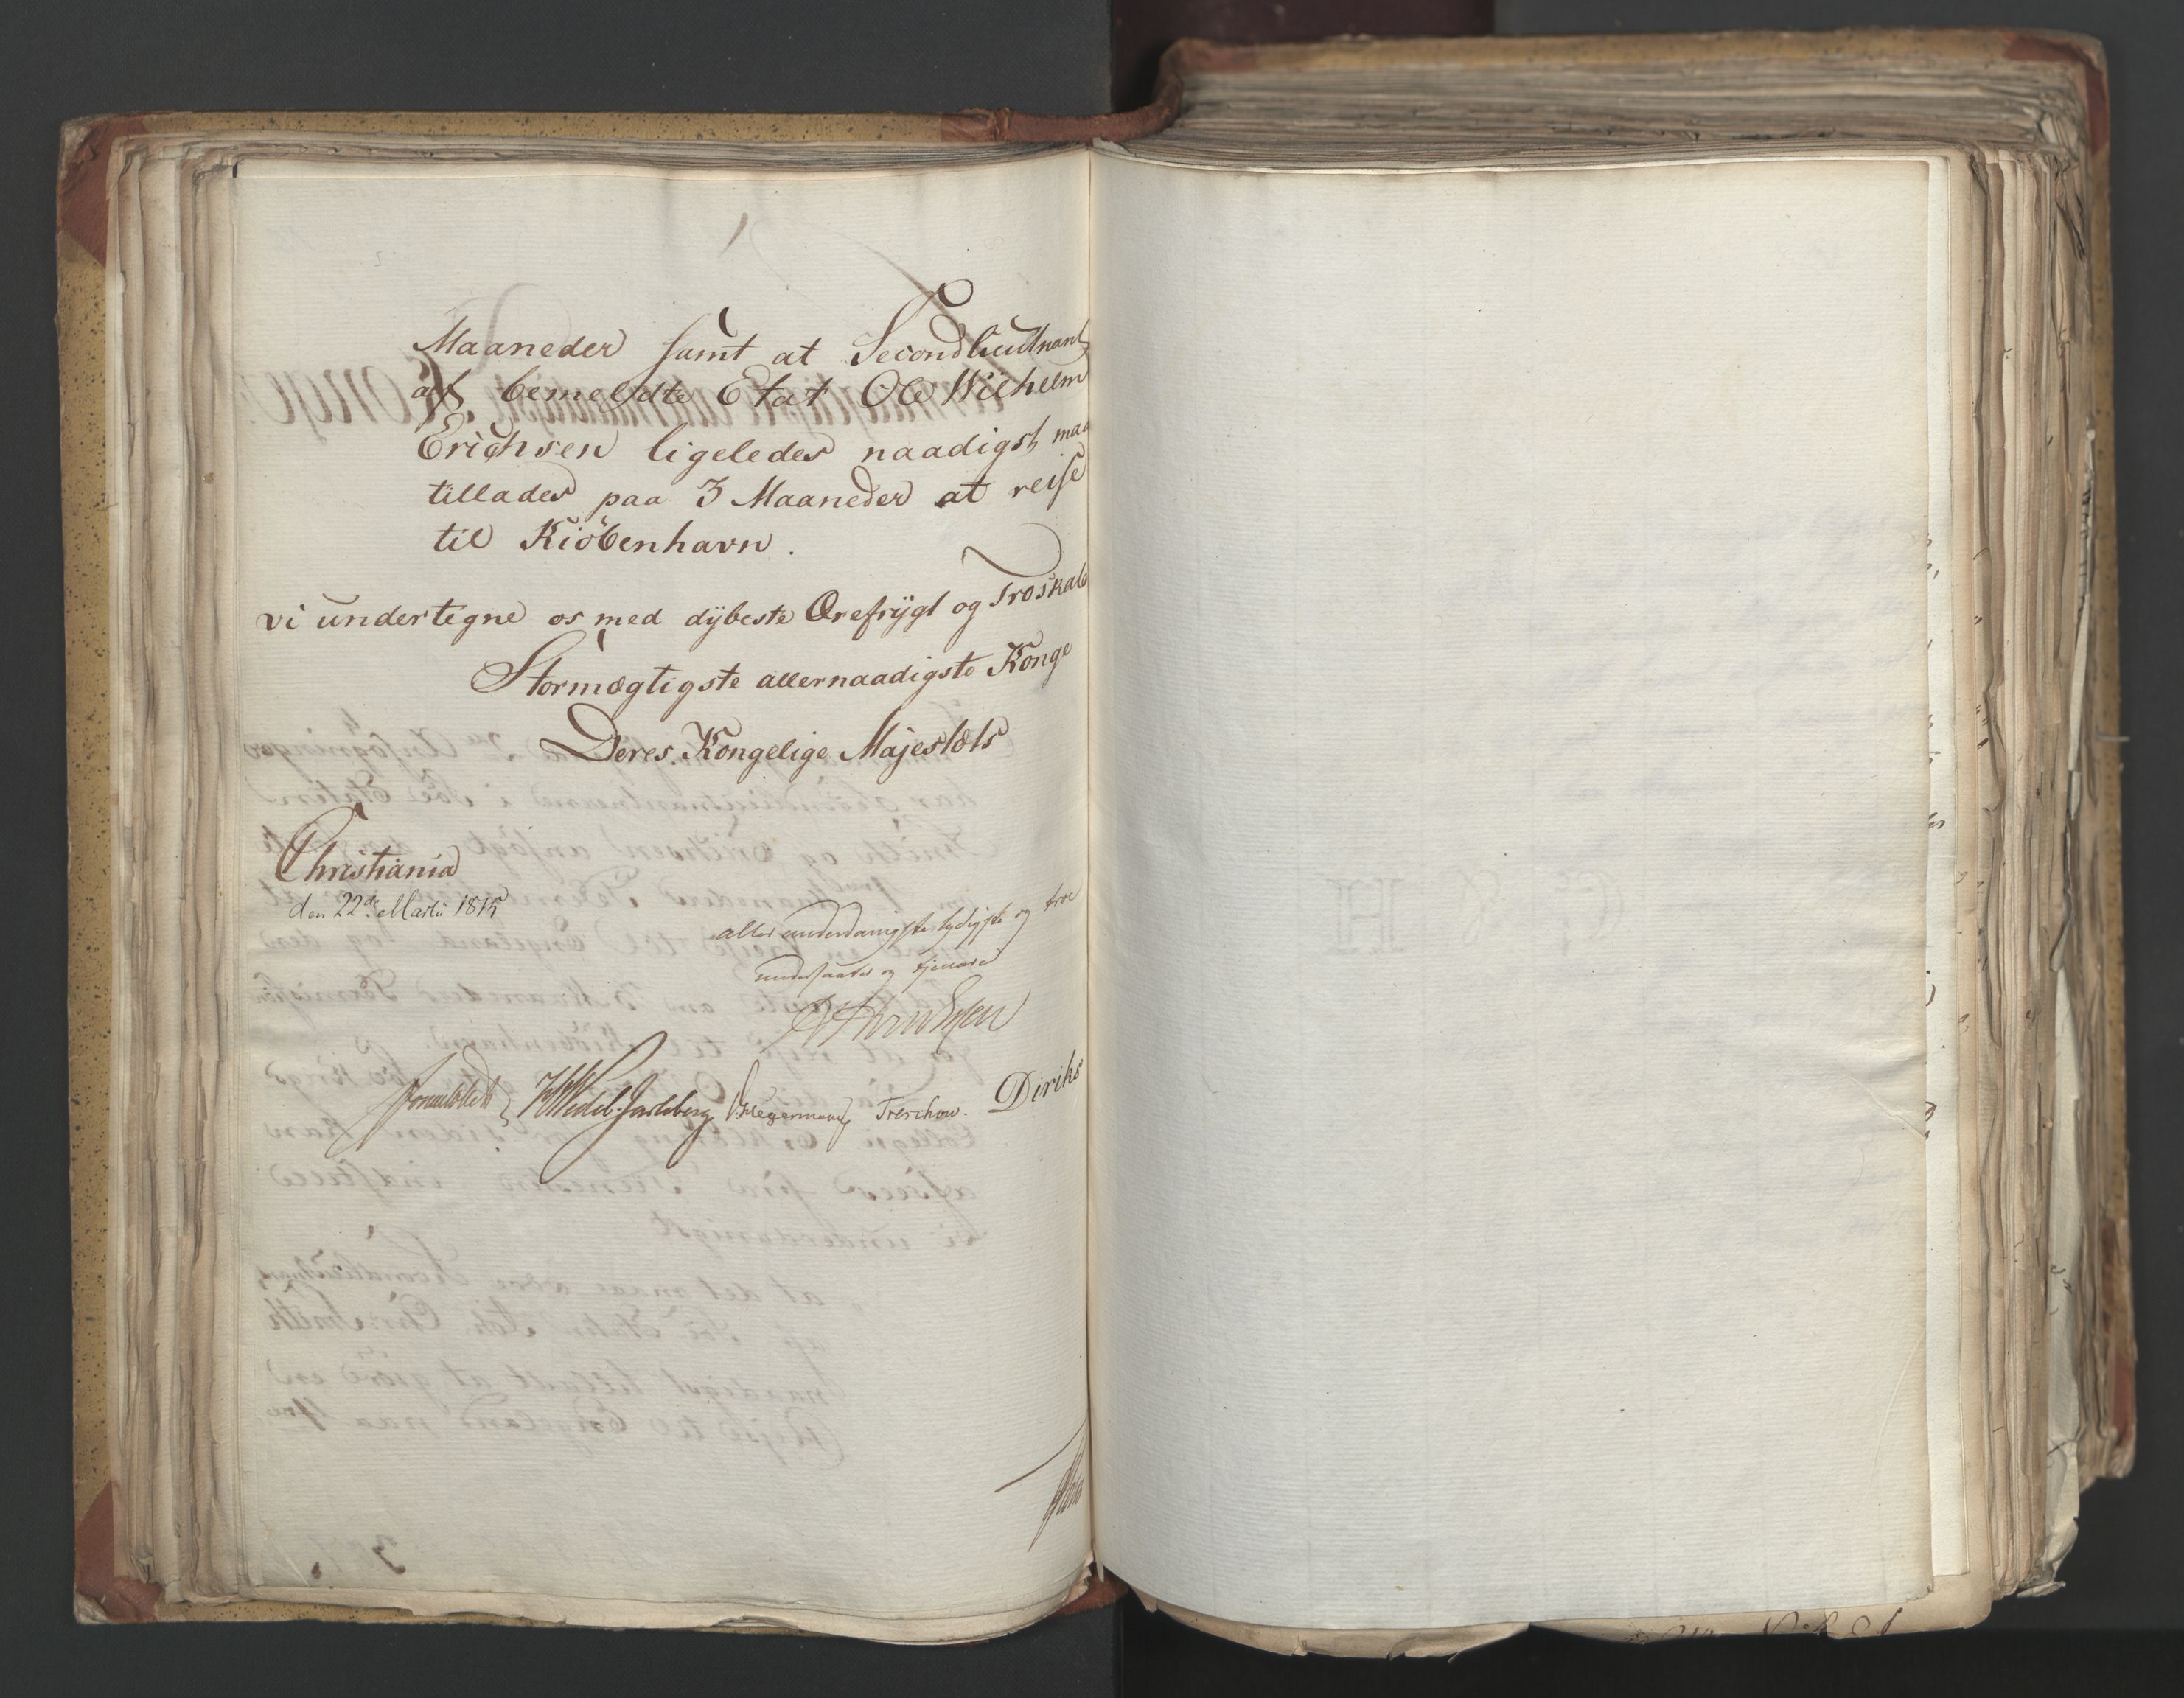 Maaneder samt at Secondlieutnant
af bemeldte Etat Ole Wilhelm
Erichsen ligeledes naadigst maa
tillades paa 3 Maaneder at reise
til Kiöbenhavn.
vi undertegne os med dÿbeste Ærefrÿgt og Troskab
Stormægtigste allernaadigste Konge
Deres Kongelige Majestæts
Christiania
den 22de Martii 1815
allerunderdanigste lydigste og troe
undersaatter og tjenere
Sommerfeldt HWedel-Jarlsberg DHegermann Treschow. Diriks